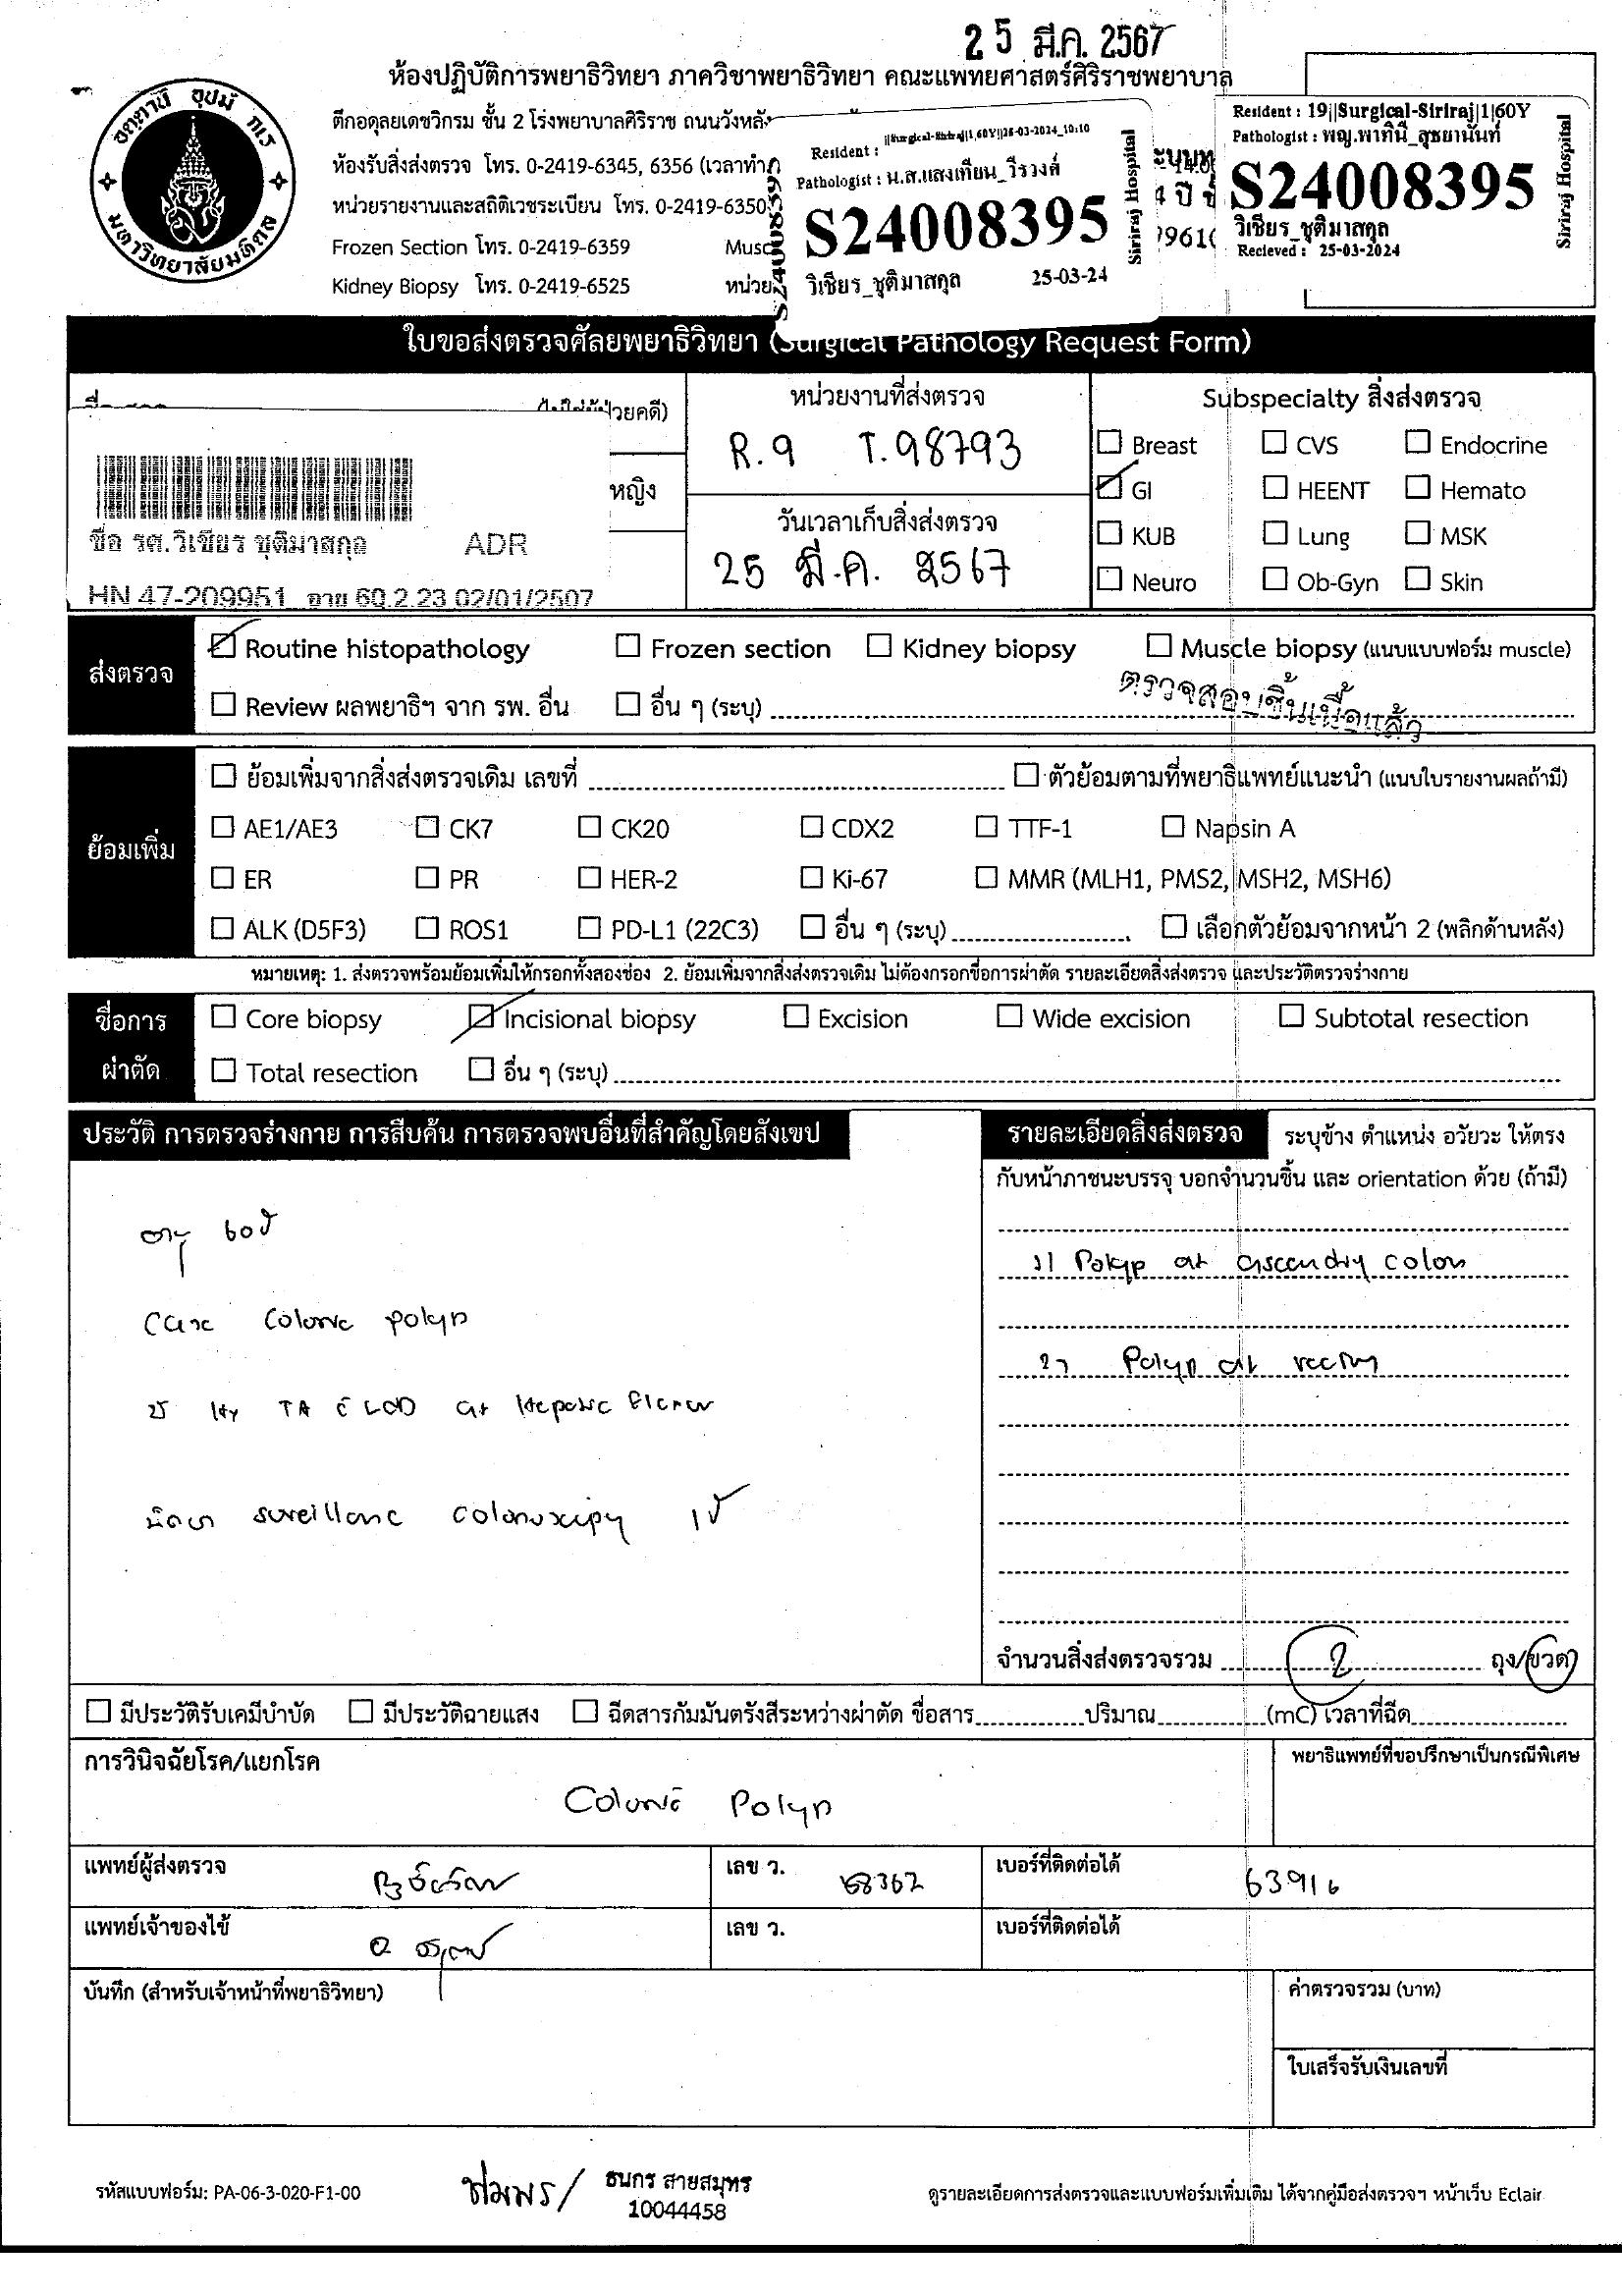 25 มี.ค. 2567
ห้องปฏิบัติการพยาธิวิทยา ภาควิชาพยาธิวิทยา คณะแพทยศาสตร์ศิริราชพยาบาล
ตึกอดุลยเดชวิกรม ชั้น 2 โรงพยาบาลศิริราช ถนนวังหลัง
ห้องรับสิ่งส่งตรวจ โทร. 0-2419-6345, 6356 (เวลาทำ
หน่วยรายงานและสถิติเวชระเบียน โทร. 0-2419-6350
Frozen Section โทร. 0-2419-6359 Musc
Kidney Biopsy โทร. 0-2419-6525 หน่วย
มหาวิทยาลัยมหิดล
Resident : ||Surgical-Siriraj|1,60Y||25-03-2024_10:10
Pathologist : น.ส.แสงเทียน_วีรวงศ์
S24008395
วิเชียร_ชุติมาสกุล 25-03-24
Siriraj Hospital
Resident : 19||Surgical-Siriraj|1|60Y
Pathologist : พญ.พาทินี_สุชยานันท์
S24008395
วิเชียร_ชุติมาสกุล
Recieved : 25-03-2024
Siriraj Hospital
ใบขอส่งตรวจศัลยพยาธิวิทยา (Surgical Pathology Request Form)
ป่วยคดี)
หญิง
ชื่อ รศ.วิเชียร ชุติมาสกุล ADR
HN 47-209951 อายุ 60.2.23 02/01/2507
หน่วยงานที่ส่งตรวจ
R.9 T.98793
วันเวลาเก็บสิ่งส่งตรวจ
25 มี.ค. 2567
Subspecialty สิ่งส่งตรวจ
Breast CVS Endocrine
GI HEENT Hemato
KUB Lung MSK
Neuro Ob-Gyn Skin
ส่งตรวจ
Routine histopathology Frozen section Kidney biopsy Muscle biopsy (แนบแบบฟอร์ม muscle)
Review ผลพยาธิฯ จาก รพ. อื่น อื่น ๆ (ระบุ)
ตรวจสอบชิ้นเนื้อแล้ว
ย้อมเพิ่ม
ย้อมเพิ่มจากสิ่งส่งตรวจเดิม เลขที่ ตัวย้อมตามที่พยาธิแพทย์แนะนำ (แนบใบรายงานผลถ้ามี)
AE1/AE3 CK7 CK20 CDX2 TTF-1 Napsin A
ER PR HER-2 Ki-67 MMR (MLH1, PMS2, MSH2, MSH6)
ALK (D5F3) ROS1 PD-L1 (22C3) อื่น ๆ (ระบุ) เลือกตัวย้อมจากหน้า 2 (พลิกด้านหลัง)
หมายเหตุ: 1. ส่งตรวจพร้อมย้อมเพิ่มให้กรอกทั้งสองช่อง 2. ย้อมเพิ่มจากสิ่งส่งตรวจเดิม ไม่ต้องกรอกชื่อการผ่าตัด รายละเอียดสิ่งส่งตรวจ และประวัติตรวจร่างกาย
ชื่อการผ่าตัด
Core biopsy Incisional biopsy Excision Wide excision Subtotal resection
Total resection อื่น ๆ (ระบุ)
ประวัติ การตรวจร่างกาย การสืบค้น การตรวจพบอื่นที่สำคัญโดยสังเขป
อายุ 60ปี
Case Colonic polyp
TA c̄ LGD at Hepatic flexure
surveillance colonoscopy 1ปี
รายละเอียดสิ่งส่งตรวจ ระบุข้าง ตำแหน่ง อวัยวะ ให้ตรง
กับหน้าภาชนะบรรจุ บอกจำนวนชิ้น และ orientation ด้วย (ถ้ามี)
1) Polyp at ascending colon
2) Polyp at rectum
จำนวนสิ่งส่งตรวจรวม 2 ถุง/ขวด
มีประวัติรับเคมีบำบัด มีประวัติฉายแสง ฉีดสารกัมมันตรังสีระหว่างผ่าตัด ชื่อสาร ปริมาณ (mC) เวลาที่ฉีด
การวินิจฉัยโรค/แยกโรค
Colonic Polyp
พยาธิแพทย์ที่ขอปรึกษาเป็นกรณีพิเศษ
แพทย์ผู้ส่งตรวจ เลข ว. 68362 เบอร์ที่ติดต่อได้ 63916
แพทย์เจ้าของไข้ เลข ว. เบอร์ที่ติดต่อได้
บันทึก (สำหรับเจ้าหน้าที่พยาธิวิทยา)
ค่าตรวจรวม (บาท)
ใบเสร็จรับเงินเลขที่
รหัสแบบฟอร์ม: PA-06-3-020-F1-00
ธนกร สายสมุทร
10044458
ดูรายละเอียดการส่งตรวจและแบบฟอร์มเพิ่มเติม ได้จากคู่มือส่งตรวจฯ หน้าเว็บ Eclair